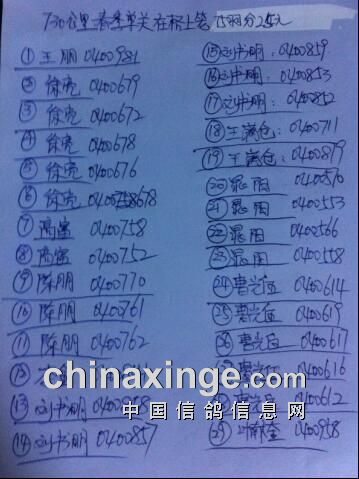 ① 王朋 0400981
② 徐亮 0400679
③ 徐亮 0400672
④ 徐亮 0400678
⑤ 徐亮 0400676
⑥ 徐亮 0400678
⑦ 高蜜 0400758
⑧ 高蜜 0400752
⑨ 陈朋 0400770
⑩ 陈朋 0400761
⑪ 陈朋 0400762
⑫
⑬ 刘书明
⑭ 刘书明 0400857
⑮ 刘书明: 0400859
⑯ 刘书明: 0400853
⑰ 刘书明: 0400852
⑱ 王满仓: 0400711
⑲ 王满仓: 0400879
⑳ 晁阳 0400570
㉑ 晁阳 0400553
㉒ 晁阳 0400566
㉓ 晁阳 0400558
㉔ 曹兴伍 0400614
㉕ 曹兴伍 0400619
㉖ 曹兴伍 0400617
0400616
0400612
㉙ 0400958
chinaxinge.com
中国信鸽信息网